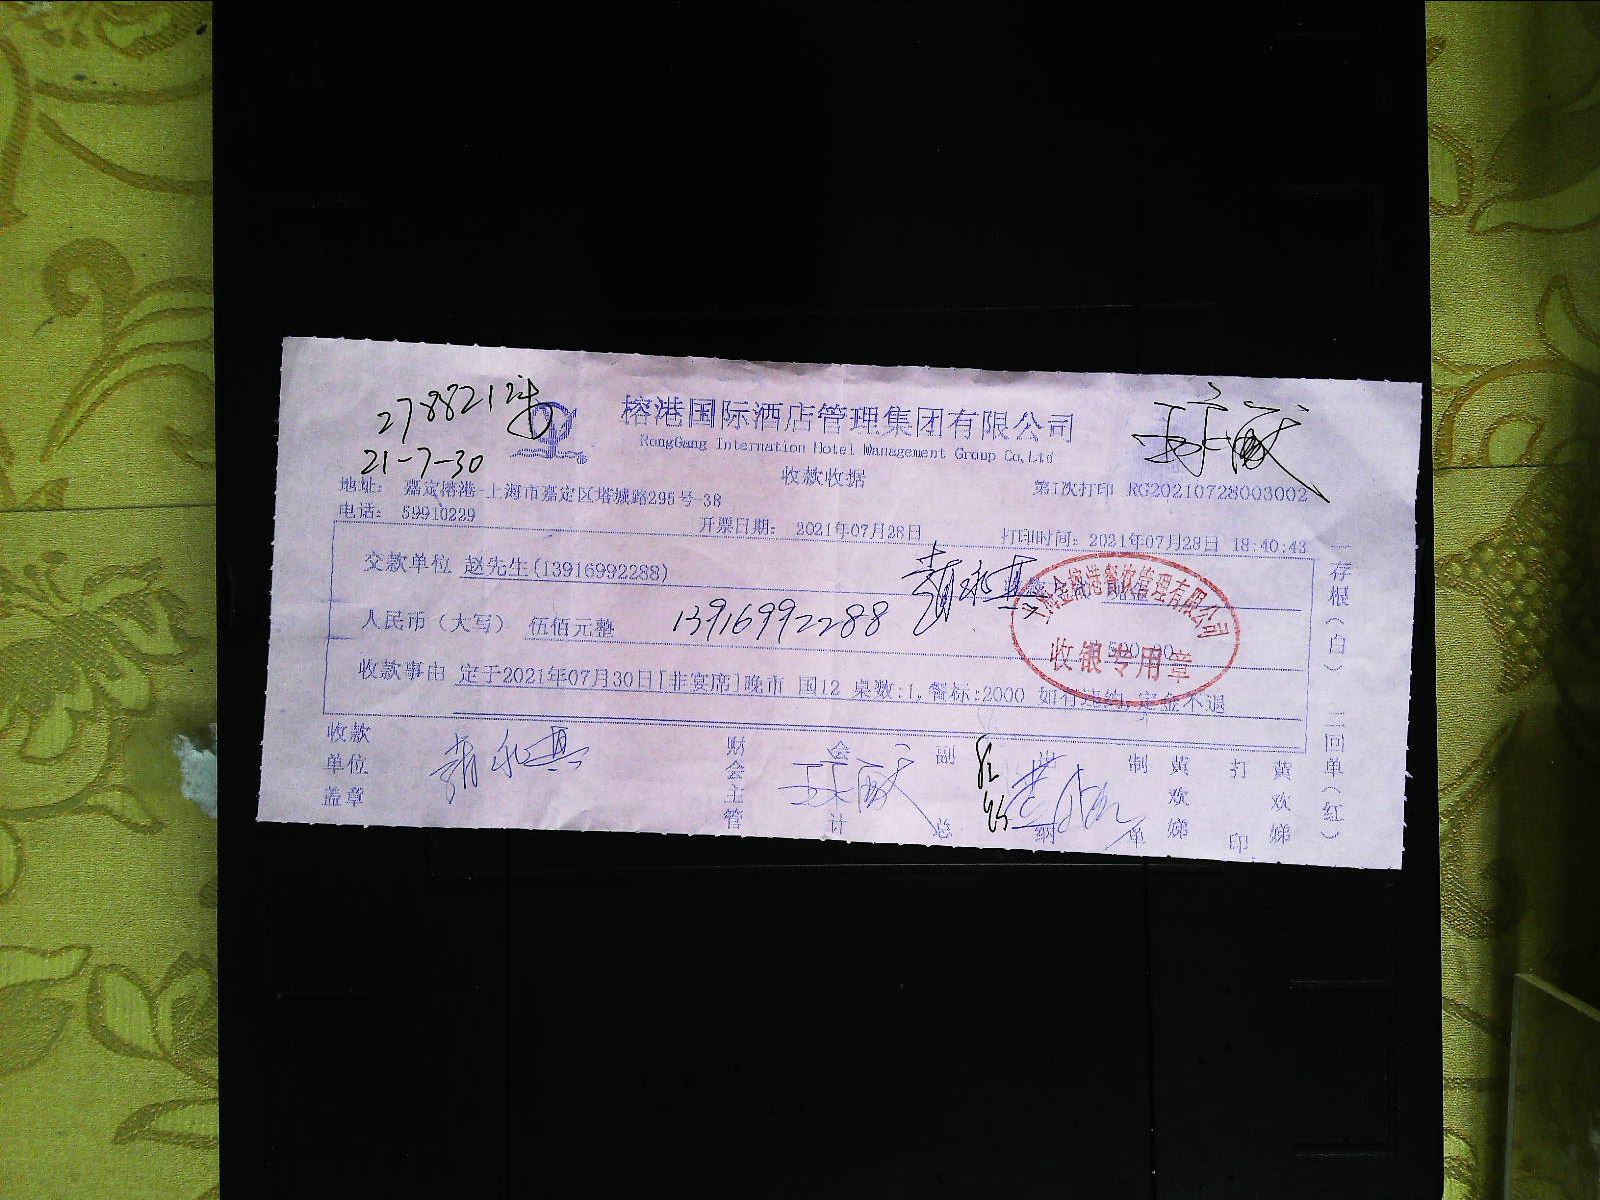 278821
21-7-30
榕港国际酒店管理集团有限公司
RongGang Internation Hotel Management Group Co,Ltd
收款收据
地址： 嘉定榕港-上海市嘉定区塔城路295号-38
第1次打印 RG20210728003002
电话： 59910229
开票日期： 2021年07月28日
打印时间：2021年07月28日 18:40:43
交款单位 赵先生(13916992288)
人民币（大写） 伍佰元整
13916992288
金榕港餐饮管理有限公司
收银专用章
收款事由 定于2021年07月30日[非宴席]晚市 国12 桌数:1,餐标:2000 如有违约,定金不退
收款单位盖章
财会主管
会计
副总
出纳
制单
黄欢娣
打印
黄欢娣
一存根（白）
二回单（红）